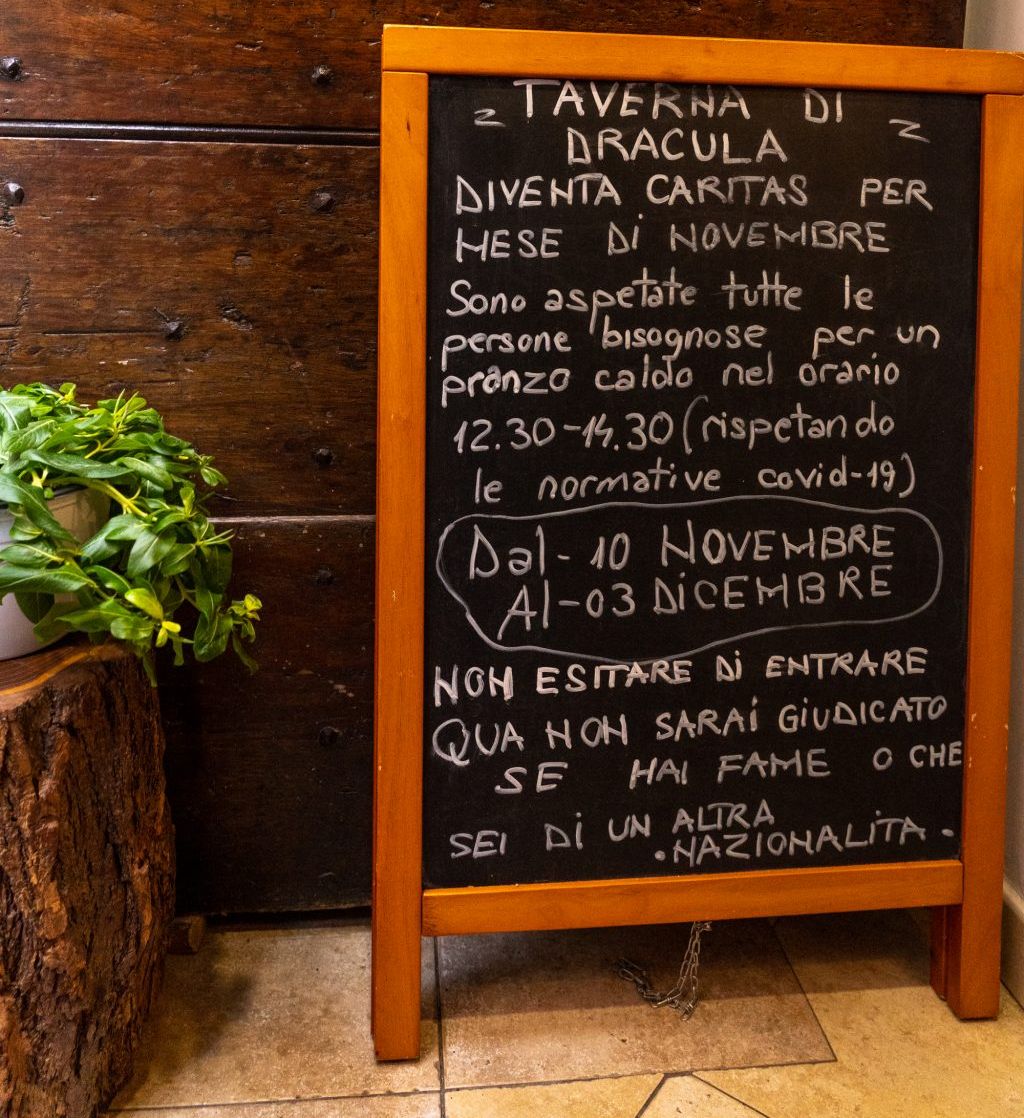 TAVERNA DI
DRACULA
DIVENTA CARITAS PER
MESE Di NOVEMBRE
Sono aspetate tutte le
persone bisognose per un
pranzo caldo nel orario
12.30-14.30 (rispetando
le normative covid-19)
Dal- 10 NOVEMBRE
Al-03 DiCEMBRE
NON ESITARE Di ENTRARE
QUA NON SARAi GiUDICATO
SE HAI FAME O CHE
SEI Di UN ALTRA
.NAZIONALiTA.